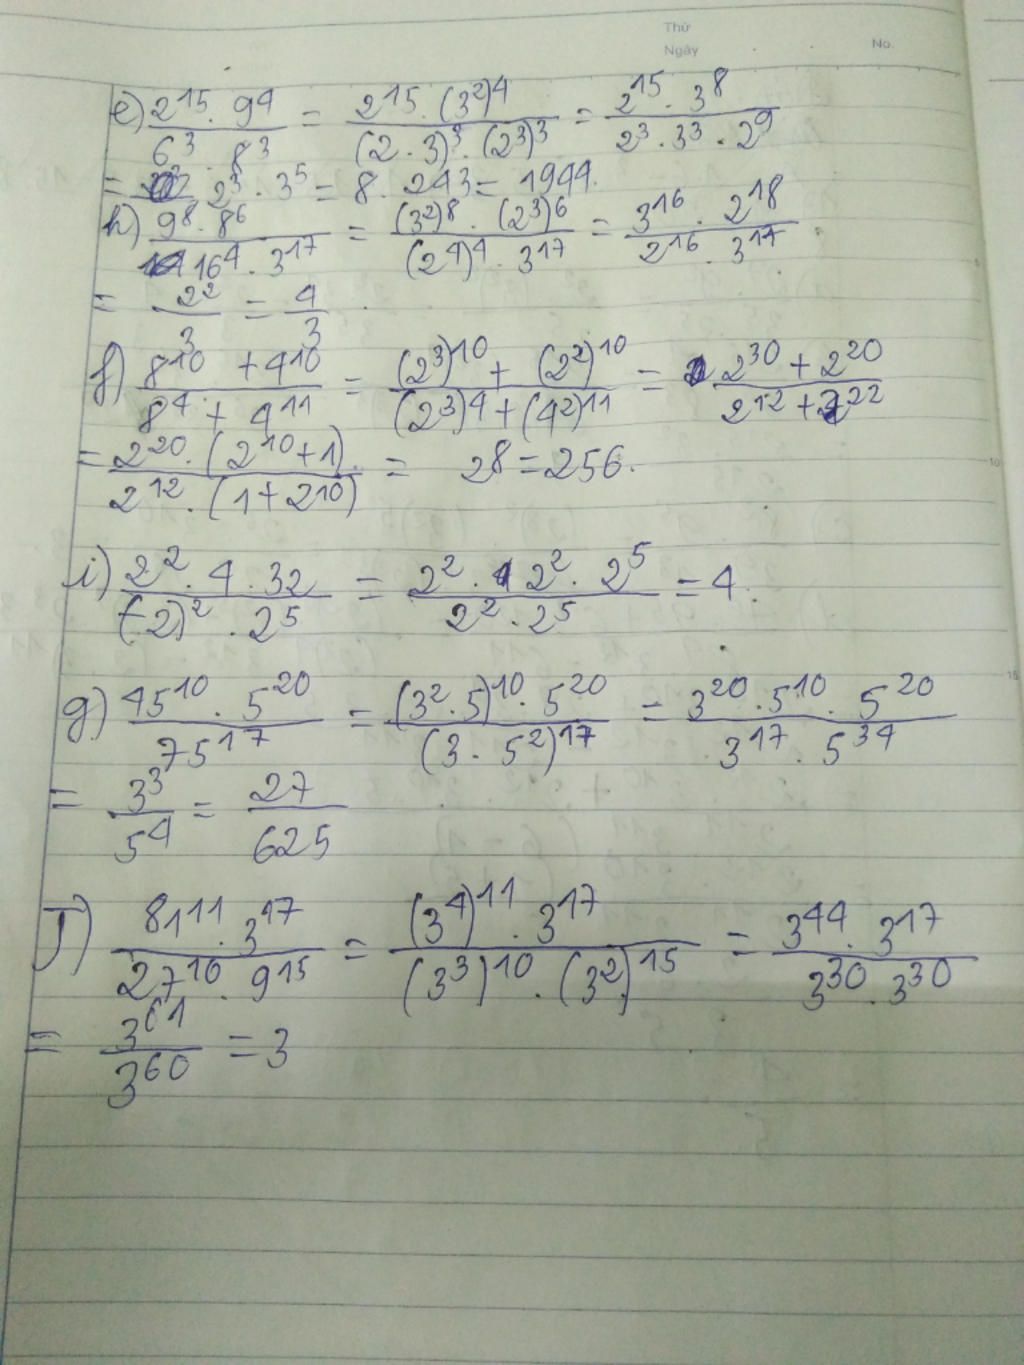 Thứ
Ngày No.
e) 2^15 . 9^4 / 6^3 . 8^3 = 2^15 . (3^2)^4 / (2 . 3)^3 . (2^3)^3 = 2^15 . 3^8 / 2^3 . 3^3 . 2^9
= 2^3 . 3^5 = 8 . 243 = 1944.
h) 9^8 . 8^6 / 16^4 . 3^17 = (3^2)^8 . (2^3)^6 / (2^4)^4 . 3^17 = 3^16 . 2^18 / 2^16 . 3^17
= 2^2 / 3 = 4 / 3
f) 8^10 + 4^10 / 8^4 + 4^11 = (2^3)^10 + (2^2)^10 / (2^3)^4 + (4^2)^11 = 2^30 + 2^20 / 2^12 + 2^22
= 2^20 . (2^10 + 1) / 2^12 . (1 + 2^10) = 2^8 = 256.
i) 2^2 . 4 . 32 / (-2)^2 . 2^5 = 2^2 . 2^2 . 2^5 / 2^2 . 2^5 = 4.
g) 45^10 . 5^20 / 75^17 = (3^2 . 5)^10 . 5^20 / (3 . 5^2)^17 = 3^20 . 5^10 . 5^20 / 3^17 . 5^34
= 3^3 / 5^4 = 27 / 625
J) 81^11 . 3^17 / 27^10 . 9^15 = (3^4)^11 . 3^17 / (3^3)^10 . (3^2)^15 = 3^44 . 3^17 / 3^30 . 3^30
= 3^61 / 3^60 = 3